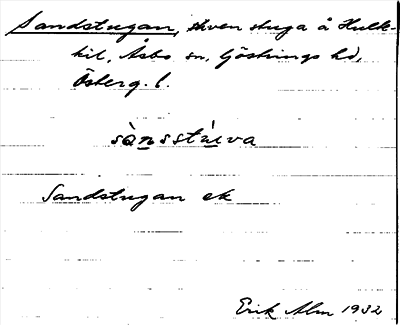 Sandstugan, även stuga å Hulk-
kil, Åsbo sn, Göstrings hd,
Österg. l.
sànsstùva
Sandstugan ek
Erik Alm 1932